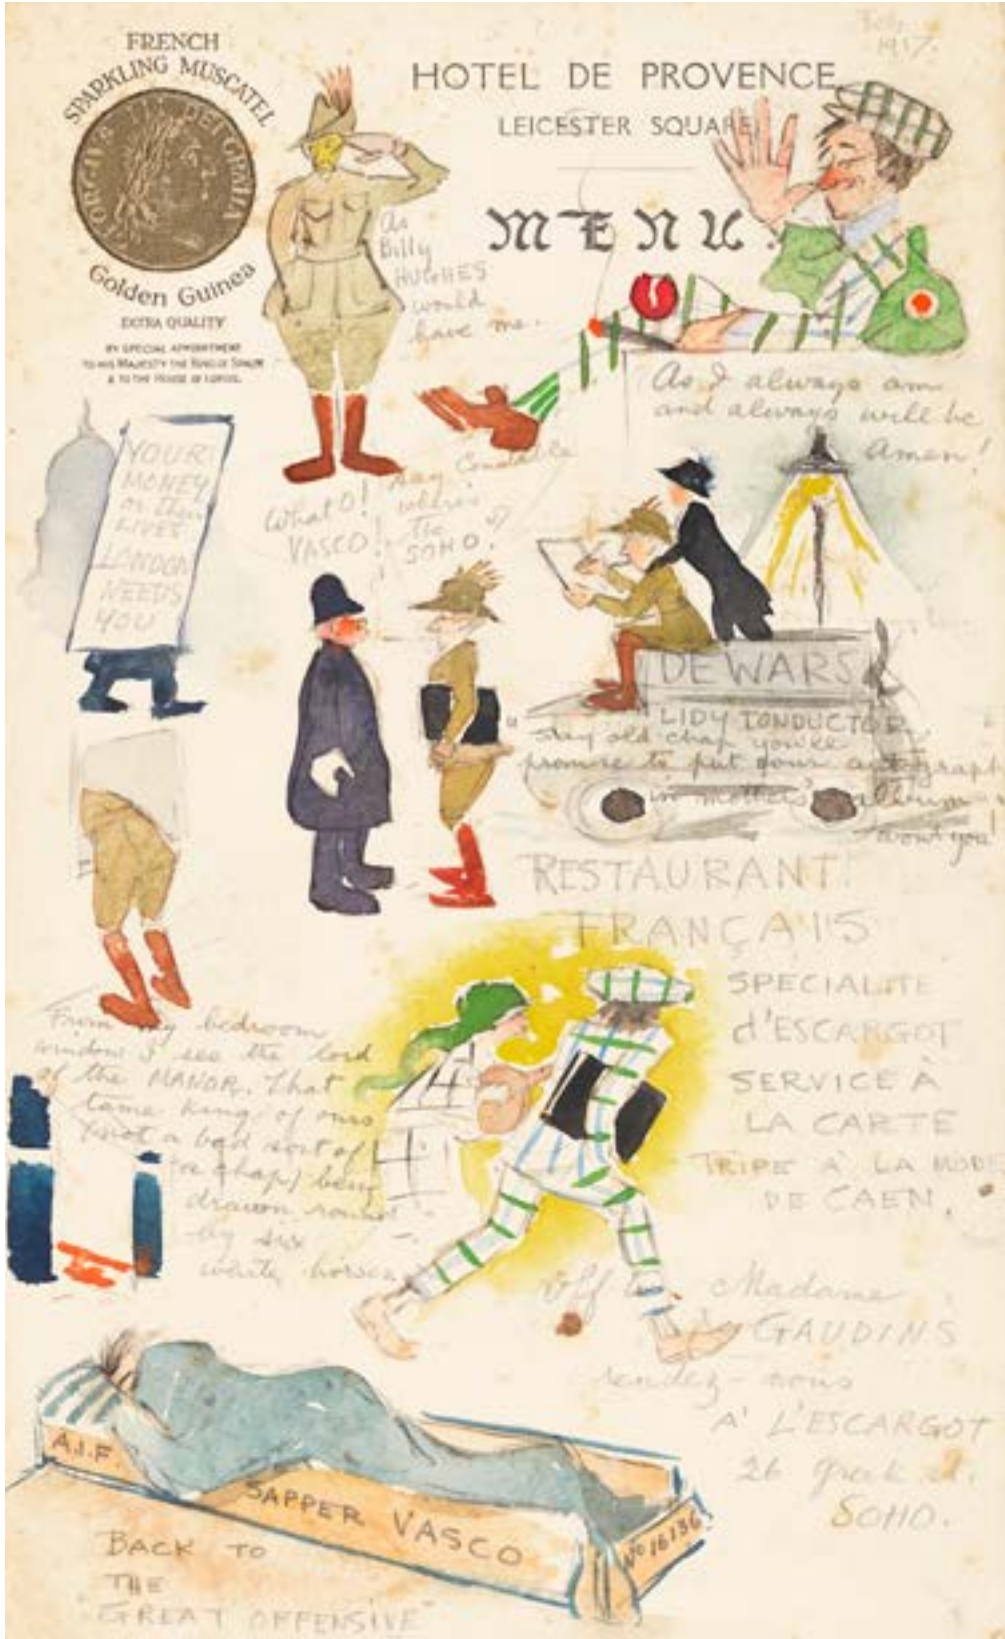 Feb
1917.
FRENCH
SPARKLING MUSCATEL
GEORGIVS III DEI GRATIA
Golden Guinea
EXTRA QUALITY
BY SPECIAL APPOINTMENT
TO HIS MAJESTY THE KING OF SPAIN
& TO THE HOUSE OF LORDS.
HOTEL DE PROVENCE
LEICESTER SQUARE
MENU.
As
Billy
HUGHES
would
have me.
As I always am
and always will be
Amen!
YOUR
MONEY
or their
LIVES
LONDON
NEEDS
YOU
What O!
VASCO!
Say Constable
where's
the
SOHO?
DEWARS
LIDY CONDUCTOR
Say old chap you've
promise to put your autograph
in mother's album
won't you
RESTAURANT
FRANÇAIS
SPECIALITE
d'ESCARGOT
SERVICE À
LA CARTE
TRIPE À LA MODE
DE CAEN.
From my bedroom
window I see the lord
of the MANOR. That
tame King of ours
(not a bad sort of
chap) being
drawn round
by six
white horses
Off to Madame
GAUDINS
rendez-vous
A' L'ESCARGOT
26 Greek St.
SOHO.
A.I.F.
SAPPER VASCO
No 16136
BACK TO
THE
"GREAT OFFENSIVE"